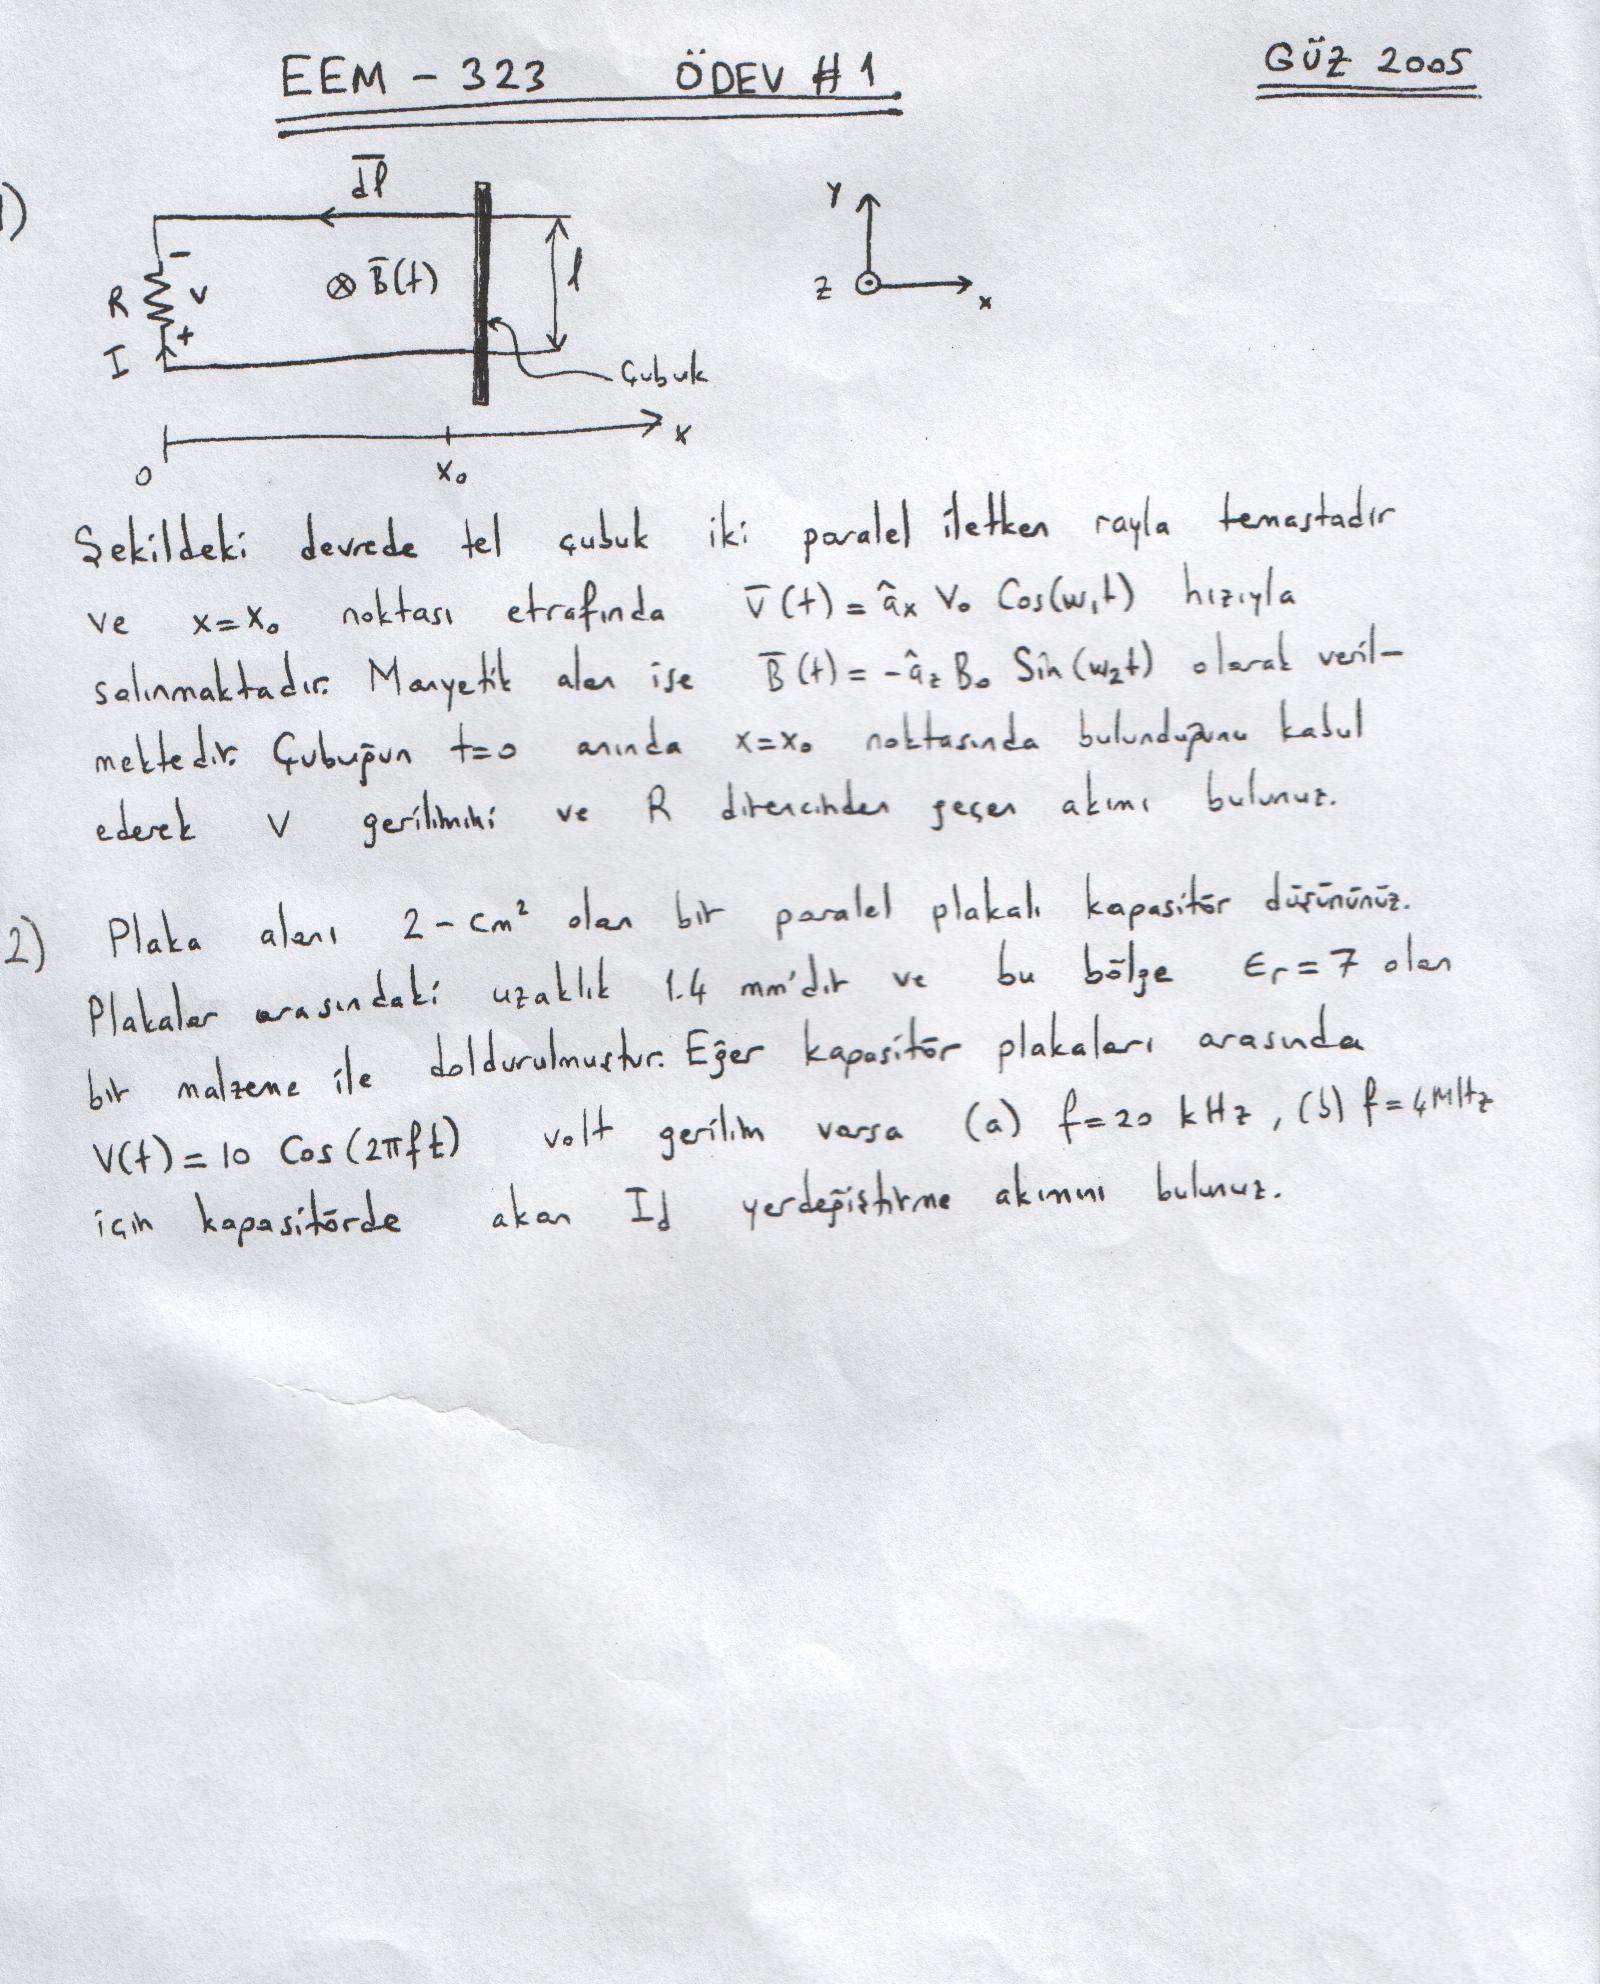 EEM - 323 ÖDEV #1 GÜZ 2005
1)
dl
R
-
V
+
I
⊗ B̅(t)
l
Çubuk
0
x₀
x
y
z
x
Şekildeki devrede tel çubuk iki paralel iletken rayla temastadır
ve x=x₀ noktası etrafında v̅(t) = âx V₀ Cos(w₁t) hızıyla
salınmaktadır. Manyetik alan ise B̅(t) = -âz B₀ Sin(w₂t) olarak veril-
mektedir. Çubuğun t=0 anında x=x₀ noktasında bulunduğunu kabul
ederek V gerilimini ve R direncinden geçen akımı bulunuz.
2) Plaka alanı 2-cm² olan bir paralel plakalı kapasitör düşününüz.
Plakalar arasındaki uzaklık 1.4 mm'dir ve bu bölge Er=7 olan
bir malzeme ile doldurulmuştur. Eğer kapasitör plakaları arasında
V(t) = 10 Cos(2πft) volt gerilim varsa (a) f=20 kHz, (b) f=4MHz
için kapasitörde akan Id yerdeğiştirme akımını bulunuz.